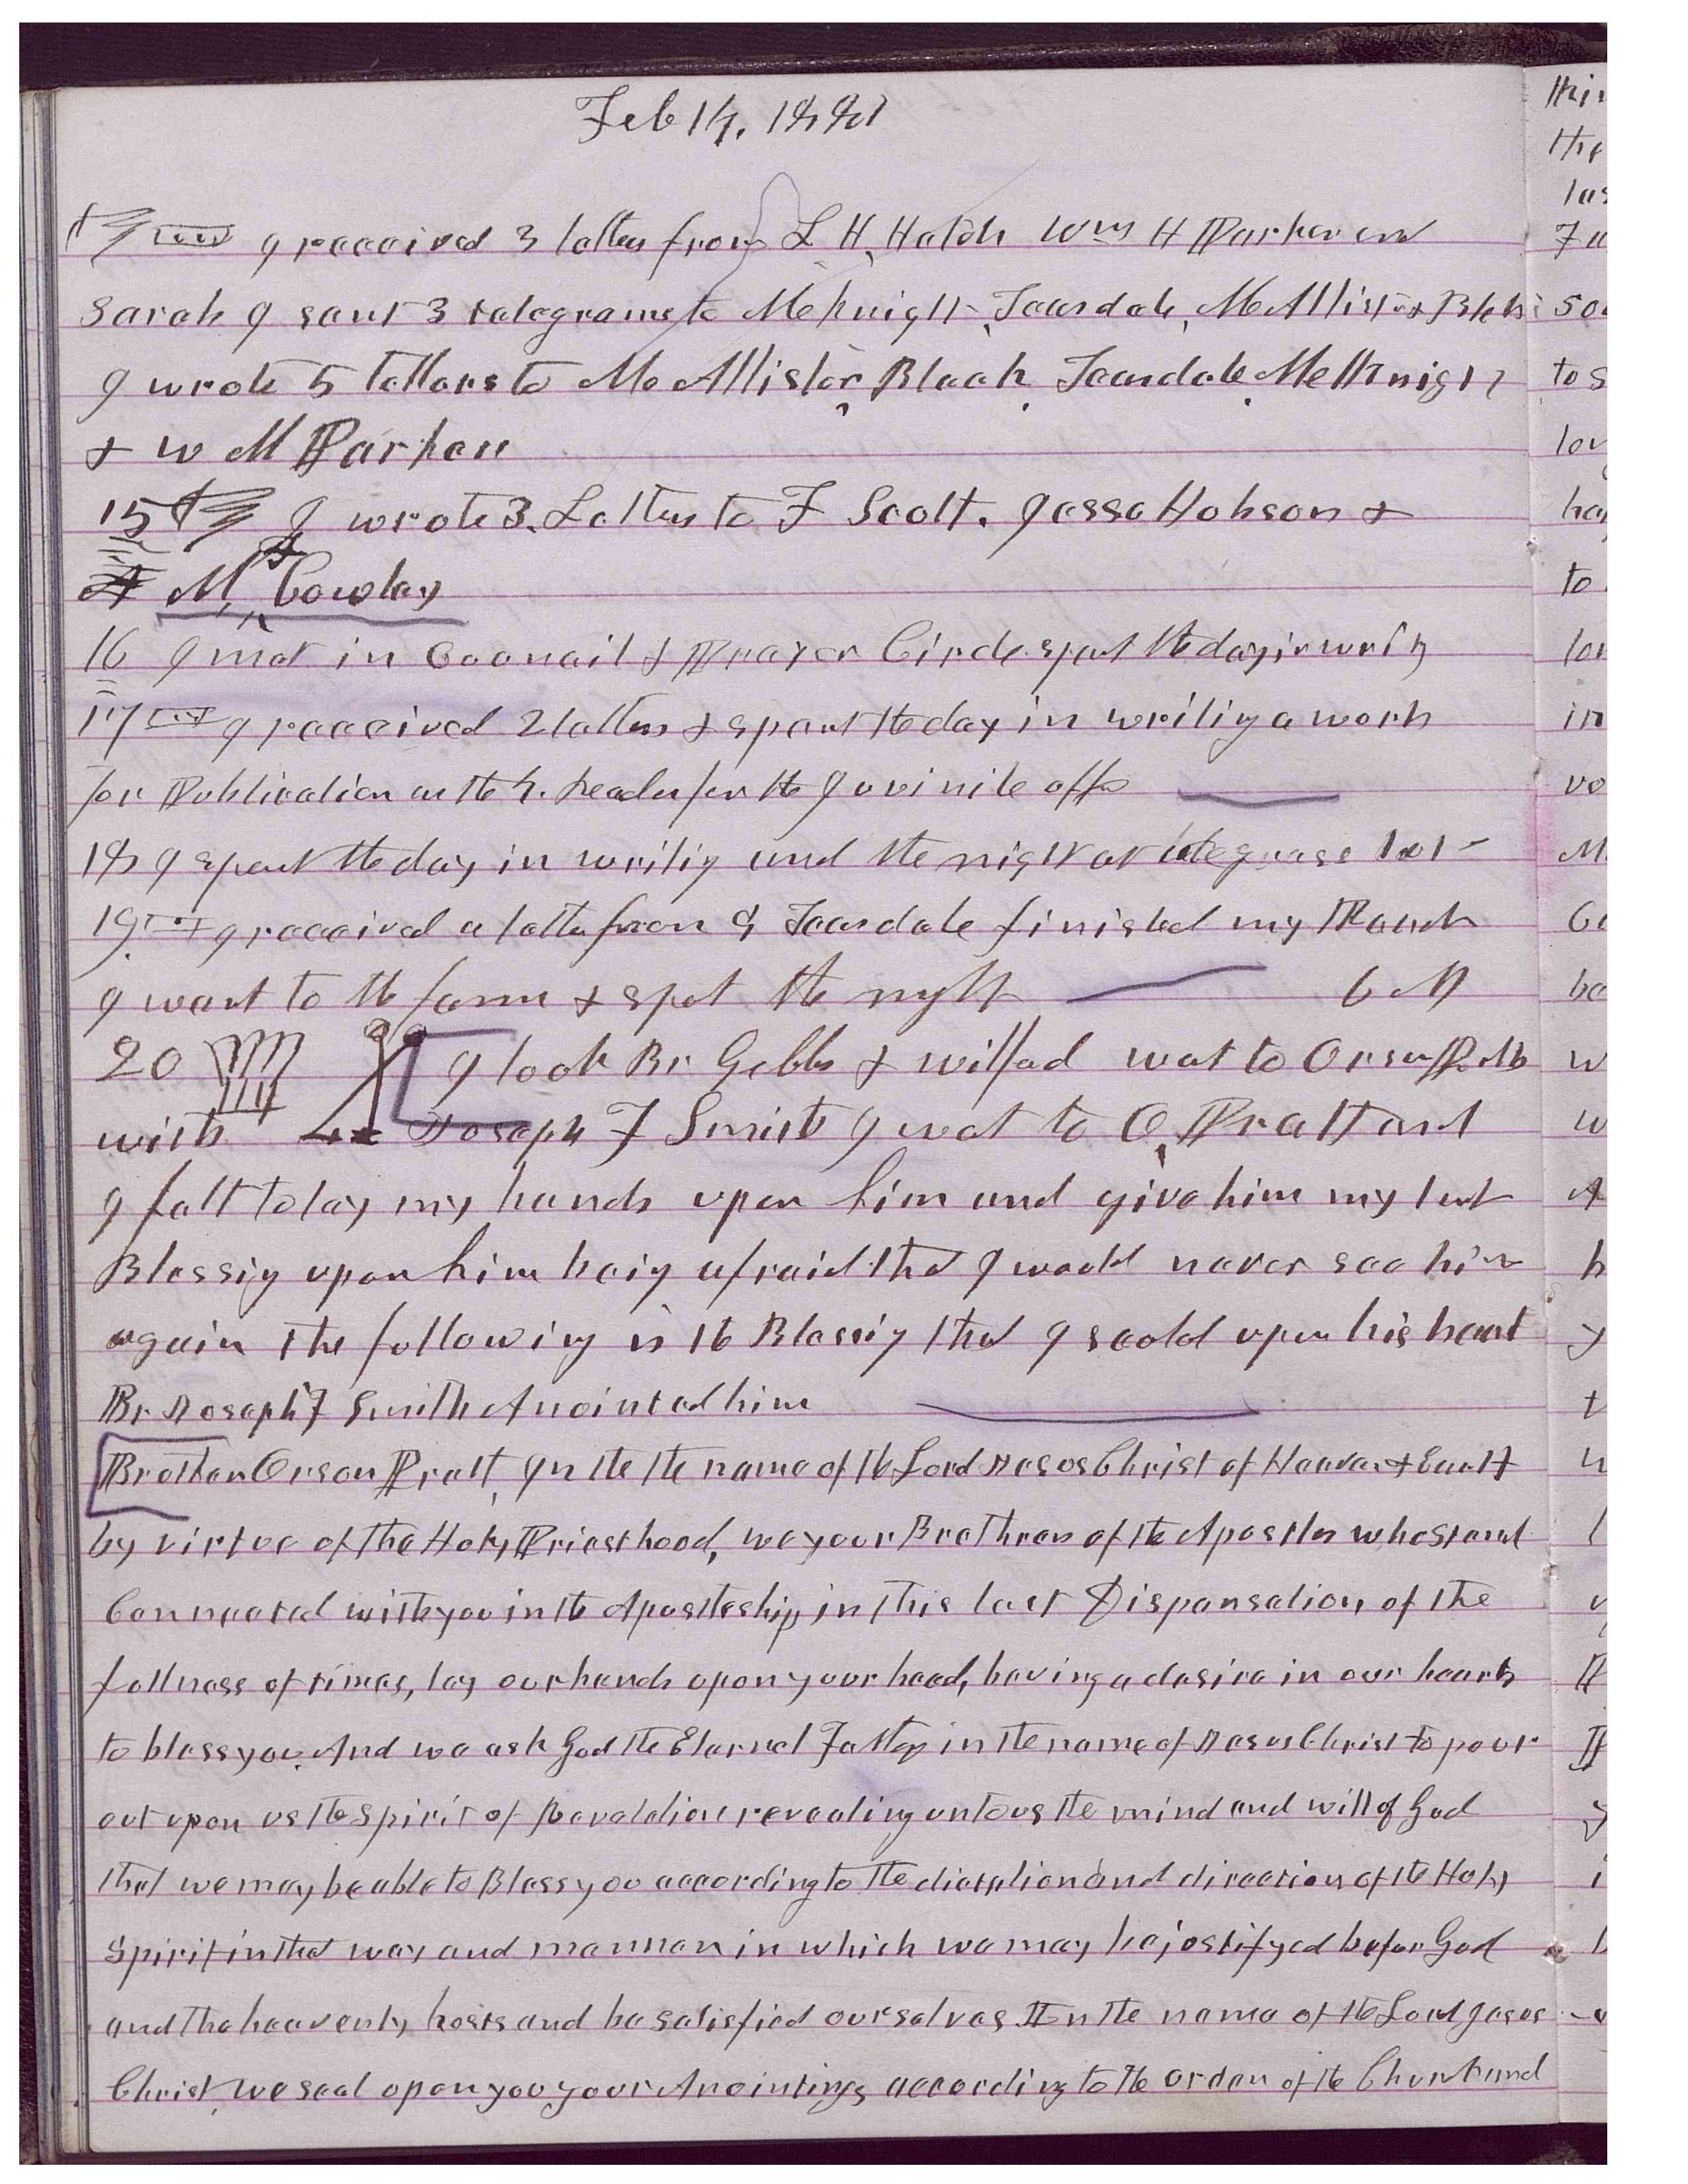 Feb 14, 1881
I received 3 letters from L H Hatch Wm H Parker and
Sarah I sent 3 telegrams to McKnight, Teasdale, McAllister &
I wrote 5 letters to McAllister, Black, Teasdale, McKnight
& w M Parker
15 I wrote 3 Letters to F Scott. Jesse Hobson &
A M Cowley
16 I met in Council & Prayer Circle spent the day in writing
17 I received 2 letters & spent the day in writing a work
for Publication as the 4. Reader for the Juvinile offic
18 I spent the day in writing and the night at
19 I received a letter from G Teasdale finished my
I went to the farm & spet the night 6 M
20 I took Br Gibbs & wilford wet to Orson Pratts
with Joseph F Smith I wet to O, Pratt and
I felt to lay my hands upon him and give him my last
Blessing upon him being afraid that I would never see him
again The following is the Blessing that I seeold upon his head
Br Joseph F Smith Anointed him
Brother Orson Pratt, In the the name of the Lord Jesus Christ of Heaven & Earth
by virtue of the Holy Priesthood, we your Brethren of the Apostles who stand
Connected with you in the Apostleship in this last Dispensation, of the
fullness of times, lay our hands upon your head, having a desire in our hearts
to bless you. And we ask God the Eternal Father in the name of Jesus Christ to pour
out upon us the spirit of Revelation revealing unto us the mind and will of God
that we may be able to Bless you according to the dictation and direction of the Holy
Spirit in that way and manner in which we may be justifyed before God
and the heavenly hosts and be satisfied ourselves. In the name of the Lord Jesus
Christ, we seal upon you your Anointing, according to the order of the Church and